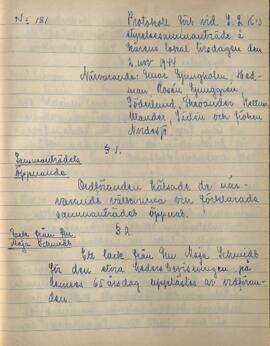 No 181
Protokoll fört vid S. L. K:s
styrelsesammanträde å
kårens lokal tisdagen den
2 nov 1944
Närvarande: Einar Ljungholm,
man, Rosén, Ljunggren,
Söderlund,
och fröken
Nordesjö
§ 1.
Sammanträdets
öppnande
Ordföranden hälsade de när-
varande välkomna och förklarade
sammanträdet öppnat.
§ 2.
Tack från Fru
Maja Schmidt
Ett tack från Fru Maja Schmidt
för den stora hedersbevisningen på
hennes 65 årsdag upplästes av ordföran-
den.